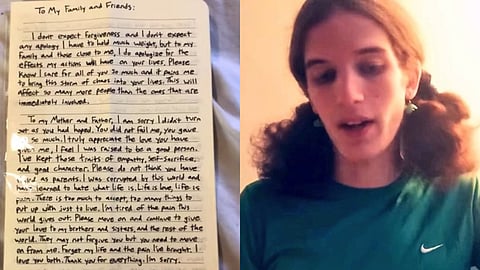 To My Family and Friends:
I don't expect forgiveness and I don't expect
any apology I have to hold much weight, but to my
family and those close to me, I do apologize for the
effects my actions will have on your lives. Please
know I care for all of you so much and it pains me
to bring this storm of chaos into your lives. This will
affect so many more people than the ones that are
immediately involved.
To my Mother and Father, I am sorry I didn't turn
out as you had hoped. You did not fail me, you gave
so much. I truly appreciate the love you have
me, I feel I was raised to be a good person.
I've kept those traits of empathy, self-sacrifice,
and good character. Please do not think you have
as parents. I was corrupted by this world and
have learned to hate what life is. Life is love, life is
pain. There is too much to accept, too many things to
put up with just to live. I'm tired of the pain this
world gives out. Please move on and continue to give
your love to my brothers and sisters, and the rest of the
world. They may not forgive you but you need to move
on from me. Forget my life and the pain I've brought. I
love you both. Thank you for everything. I'm sorry.